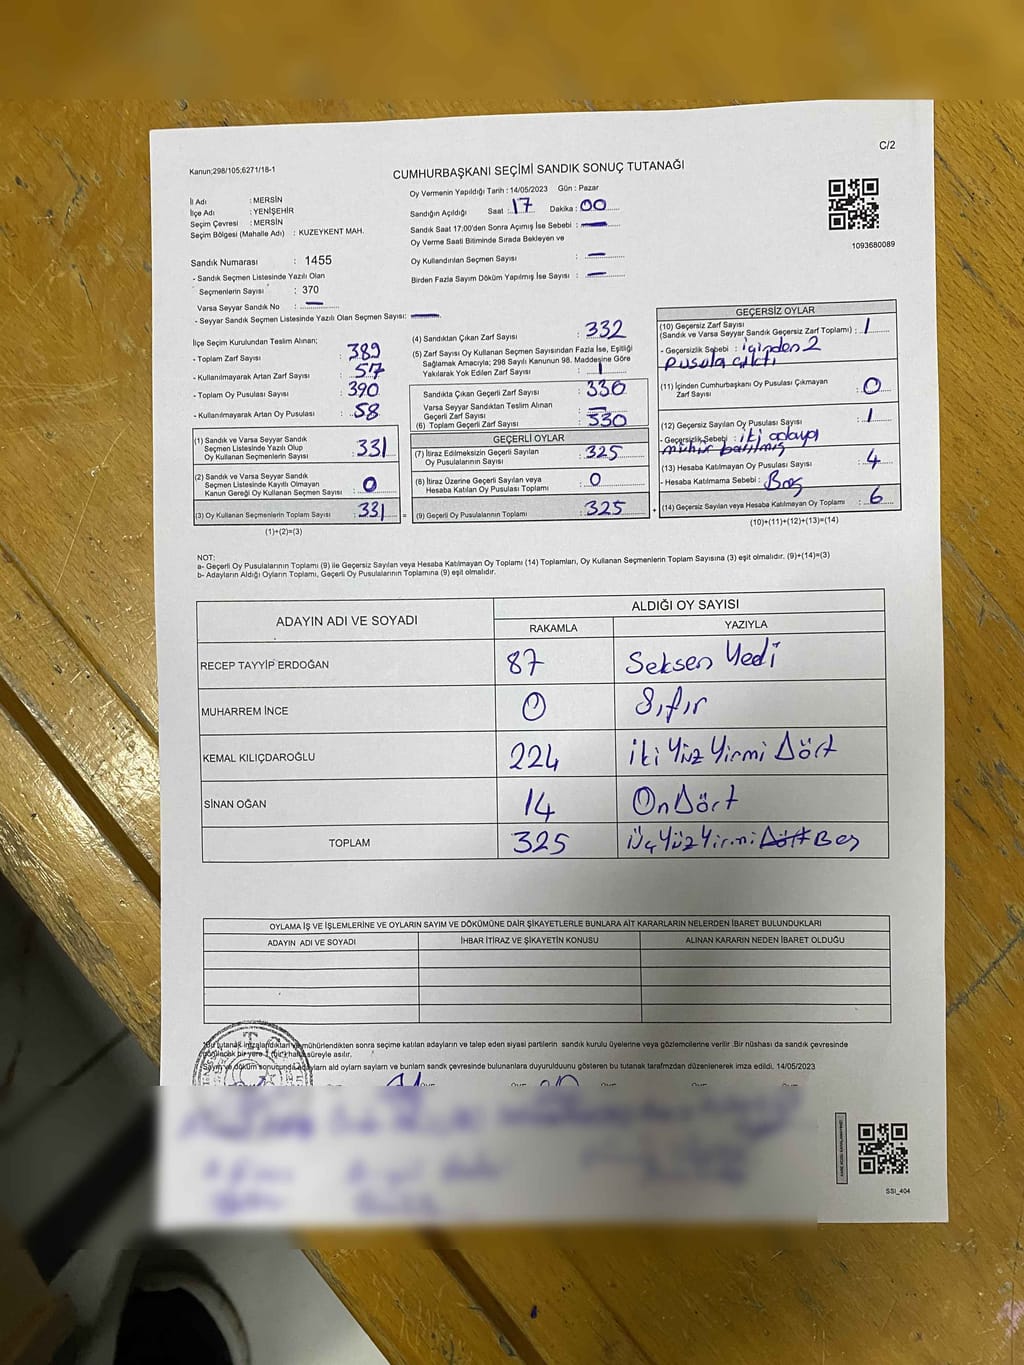 C/2
Kanun;298/105;6271/18-1
CUMHURBAŞKANI SEÇİMİ SANDIK SONUÇ TUTANAĞI
İl Adı : MERSİN
İlçe Adı : YENİŞEHİR
Seçim Çevresi : MERSİN
Seçim Bölgesi (Mahalle Adı) : KUZEYKENT MAH.
Oy Vermenin Yapıldığı Tarih : 14/05/2023 Gün : Pazar
Sandığın Açıldığı Saat : 17 Dakika : 00
Sandık Saat 17:00'den Sonra Açımış İse Sebebi : —
Oy Verme Saati Bitiminde Sırada Bekleyen ve
Oy Kullandırılan Seçmen Sayısı : —
Birden Fazla Sayım Döküm Yapılmış İse Sayısı : —
1093680089
Sandık Numarası : 1455
- Sandık Seçmen Listesinde Yazılı Olan
Seçmenlerin Sayısı : 370
Varsa Seyyar Sandık No : —
- Seyyar Sandık Seçmen Listesinde Yazılı Olan Seçmen Sayısı: —
İlçe Seçim Kurulundan Teslim Alınan;
- Toplam Zarf Sayısı : 389
- Kullanılmayarak Artan Zarf Sayısı : 57
- Toplam Oy Pusulası Sayısı : 390
- Kullanılmayarak Artan Oy Pusulası : 58
(1) Sandık ve Varsa Seyyar Sandık
Seçmen Listesinde Yazılı Olup
Oy Kullanan Seçmenlerin Sayısı : 331
(2) Sandık ve Varsa Seyyar Sandık
Seçmen Listesinde Kayıtlı Olmayan
Kanun Gereği Oy Kullanan Seçmen Sayısı : 0
(3) Oy Kullanan Seçmenlerin Toplam Sayısı : 331 =
(1)+(2)=(3)
(4) Sandıktan Çıkan Zarf Sayısı : 332
(5) Zarf Sayısı Oy Kullanan Seçmen Sayısından Fazla İse, Eşitliği
Sağlamak Amacıyla; 298 Sayılı Kanunun 98. Maddesine Göre
Yakılarak Yok Edilen Zarf Sayısı : 1
Sandıkta Çıkan Geçerli Zarf Sayısı : 330
Varsa Seyyar Sandıktan Teslim Alınan
Geçerli Zarf Sayısı : —
(6) Toplam Geçerli Zarf Sayısı : 330
GEÇERLİ OYLAR
(7) İtiraz Edilmeksizin Geçerli Sayılan
Oy Pusulalarının Sayısı : 325
(8) İtiraz Üzerine Geçerli Sayılan veya
Hesaba Katılan Oy Pusulası Toplamı : 0
(9) Geçerli Oy Pusulalarının Toplamı : 325 +
GEÇERSİZ OYLAR
(10) Geçersiz Zarf Sayısı
(Sandık ve Varsa Seyyar Sandık Geçersiz Zarf Toplamı) : 1
- Geçersizlik Sebebi : içinden 2
pusula çıktı
(11) İçinden Cumhurbaşkanı Oy Pusulası Çıkmayan
Zarf Sayısı : 0
(12) Geçersiz Sayılan Oy Pusulası Sayısı : 1
- Geçersizlik Sebebi : iki adaya
mühür basılmış
(13) Hesaba Katılmayan Oy Pusulası Sayısı : 4
- Hesaba Katılmama Sebebi : Boş
(14) Geçersiz Sayılan veya Hesaba Katılmayan Oy Toplamı : 6
(10)+(11)+(12)+(13)=(14)
NOT:
a- Geçerli Oy Pusulalarının Toplamı (9) ile Geçersiz Sayılan veya Hesaba Katılmayan Oy Toplamı (14) Toplamları, Oy Kullanan Seçmenlerin Toplam Sayısına (3) eşit olmalıdır. (9)+(14)=(3)
b- Adayların Aldığı Oyların Toplamı, Geçerli Oy Pusulalarının Toplamına (9) eşit olmalıdır.
ADAYIN ADI VE SOYADI
ALDIĞI OY SAYISI
RAKAMLA YAZIYLA
RECEP TAYYİP ERDOĞAN 87 Seksen Yedi
MUHARREM İNCE 0 Sıfır
KEMAL KILIÇDAROĞLU 224 iki Yüz Yirmi Dört
SİNAN OĞAN 14 On Dört
TOPLAM 325 Üç Yüz Yirmi Dört Beş
OYLAMA İŞ VE İŞLEMLERİNE VE OYLARIN SAYIM VE DÖKÜMÜNE DAİR ŞİKAYETLERLE BUNLARA AİT KARARLARIN NELERDEN İBARET BULUNDUKLARI
ADAYIN ADI VE SOYADI İHBAR İTİRAZ VE ŞİKAYETİN KONUSU ALINAN KARARIN NEDEN İBARET OLDUĞU
*Bu tutanak imzalandıktan ve mühürlendikten sonra seçime katılan adayların ve talep eden siyasi partilerin sandık kurulu üyelerine veya gözlemcilerine verilir .Bir nüshası da sandık çevresinde
görülecek bir yere 1 (bir) hafta süreyle asılır.
Sayım ve döküm sonucunda adayların ald oyların sayların ve bunların sandık çevresinde bulunanlara duyurulduunu gösteren bu tutanak tarafmzdan düzenlenerek imza edildi. 14/05/2023
SSI_404